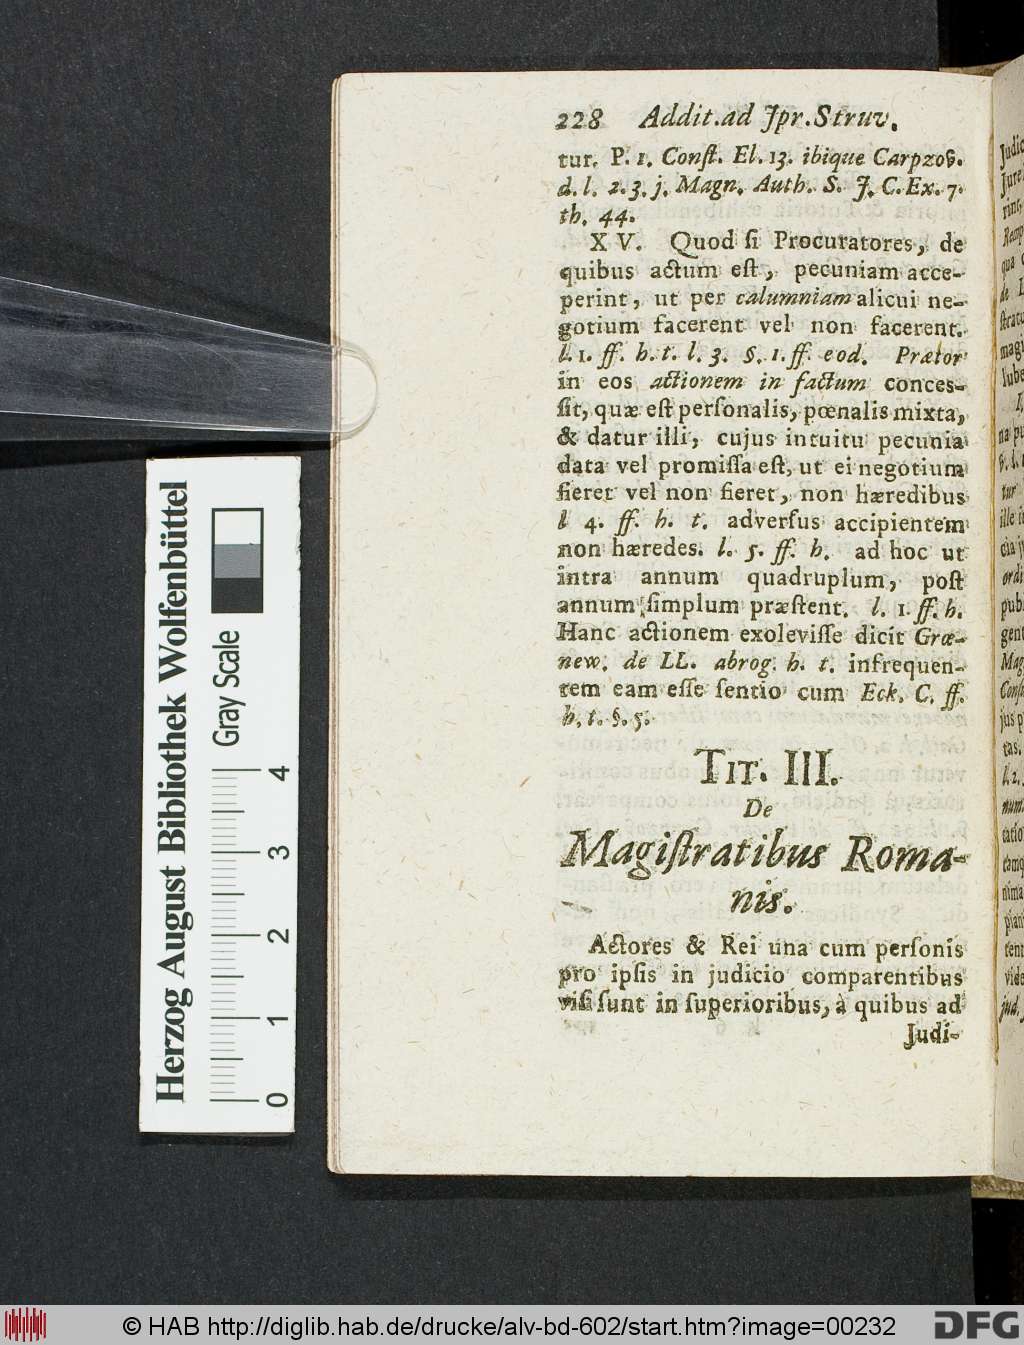 228 Addit. ad Jpr. Struv.
tur. P. 1. Conſt. El. 13. ibique Carpzov.
d. l. 2. 3. j. Magn. Auth. S. J. C. Ex. 7.
th. 44.
XV. Quod ſi Procuratores, de
quibus actum eſt, pecuniam acce-
perint, ut per calumniam alicui ne-
gotium facerent vel non facerent.
l. 1. ff. h. t. l. 3. §. 1. ff. eod. Prætor
in eos actionem in factum conces-
ſit, quæ eſt perſonalis, pœnalis mixta,
& datur illi, cujus intuitu pecunia
data vel promiſſa eſt, ut ei negotium
fieret vel non fieret, non hæredibus
l 4. ff. h. t. adverſus accipientem
non hæredes. l. 5. ff. h. ad hoc ut
intra annum quadruplum, poſt
annum ſimplum præſtent. l. 1. ff. h.
Hanc actionem exoleviſſe dicit Grœ-
new. de LL. abrog. h. t. infrequen-
tem eam eſſe ſentio cum Eck. C. ff.
h. t. §. 5.
TIT. III.
De
Magiſtratibus Roma-
nis.
Actores & Rei una cum perſonis
pro ipſis in judicio comparentibus
viſi ſunt in ſuperioribus, à quibus ad
Judi-
Herzog August Bibliothek Wolfenbüttel
Gray Scale
0 1 2 3 4
© HAB http://diglib.hab.de/drucke/alv-bd-602/start.htm?image=00232
DFG